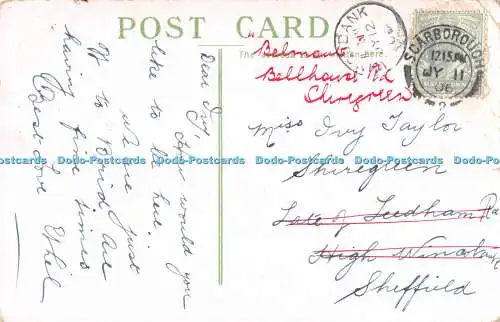 POST CARD
"Belmont"
Bellhouse Rd
Shiregreen
SCARBOROUGH
12 15 PM
JY 11
06
2
Dear Ivy,
How would you
like to be here.
We are just
off to Brid are
having fine times
Best Love Ethel
Miss Ivy Taylor
Shiregreen
Late of Leedham Rd
High Wincobank
Sheffield
Dodo-Postcards Dodo-Postcards Dodo-Postcards Dodo-Postcards Dodo-Postcards Dodo-Postcards